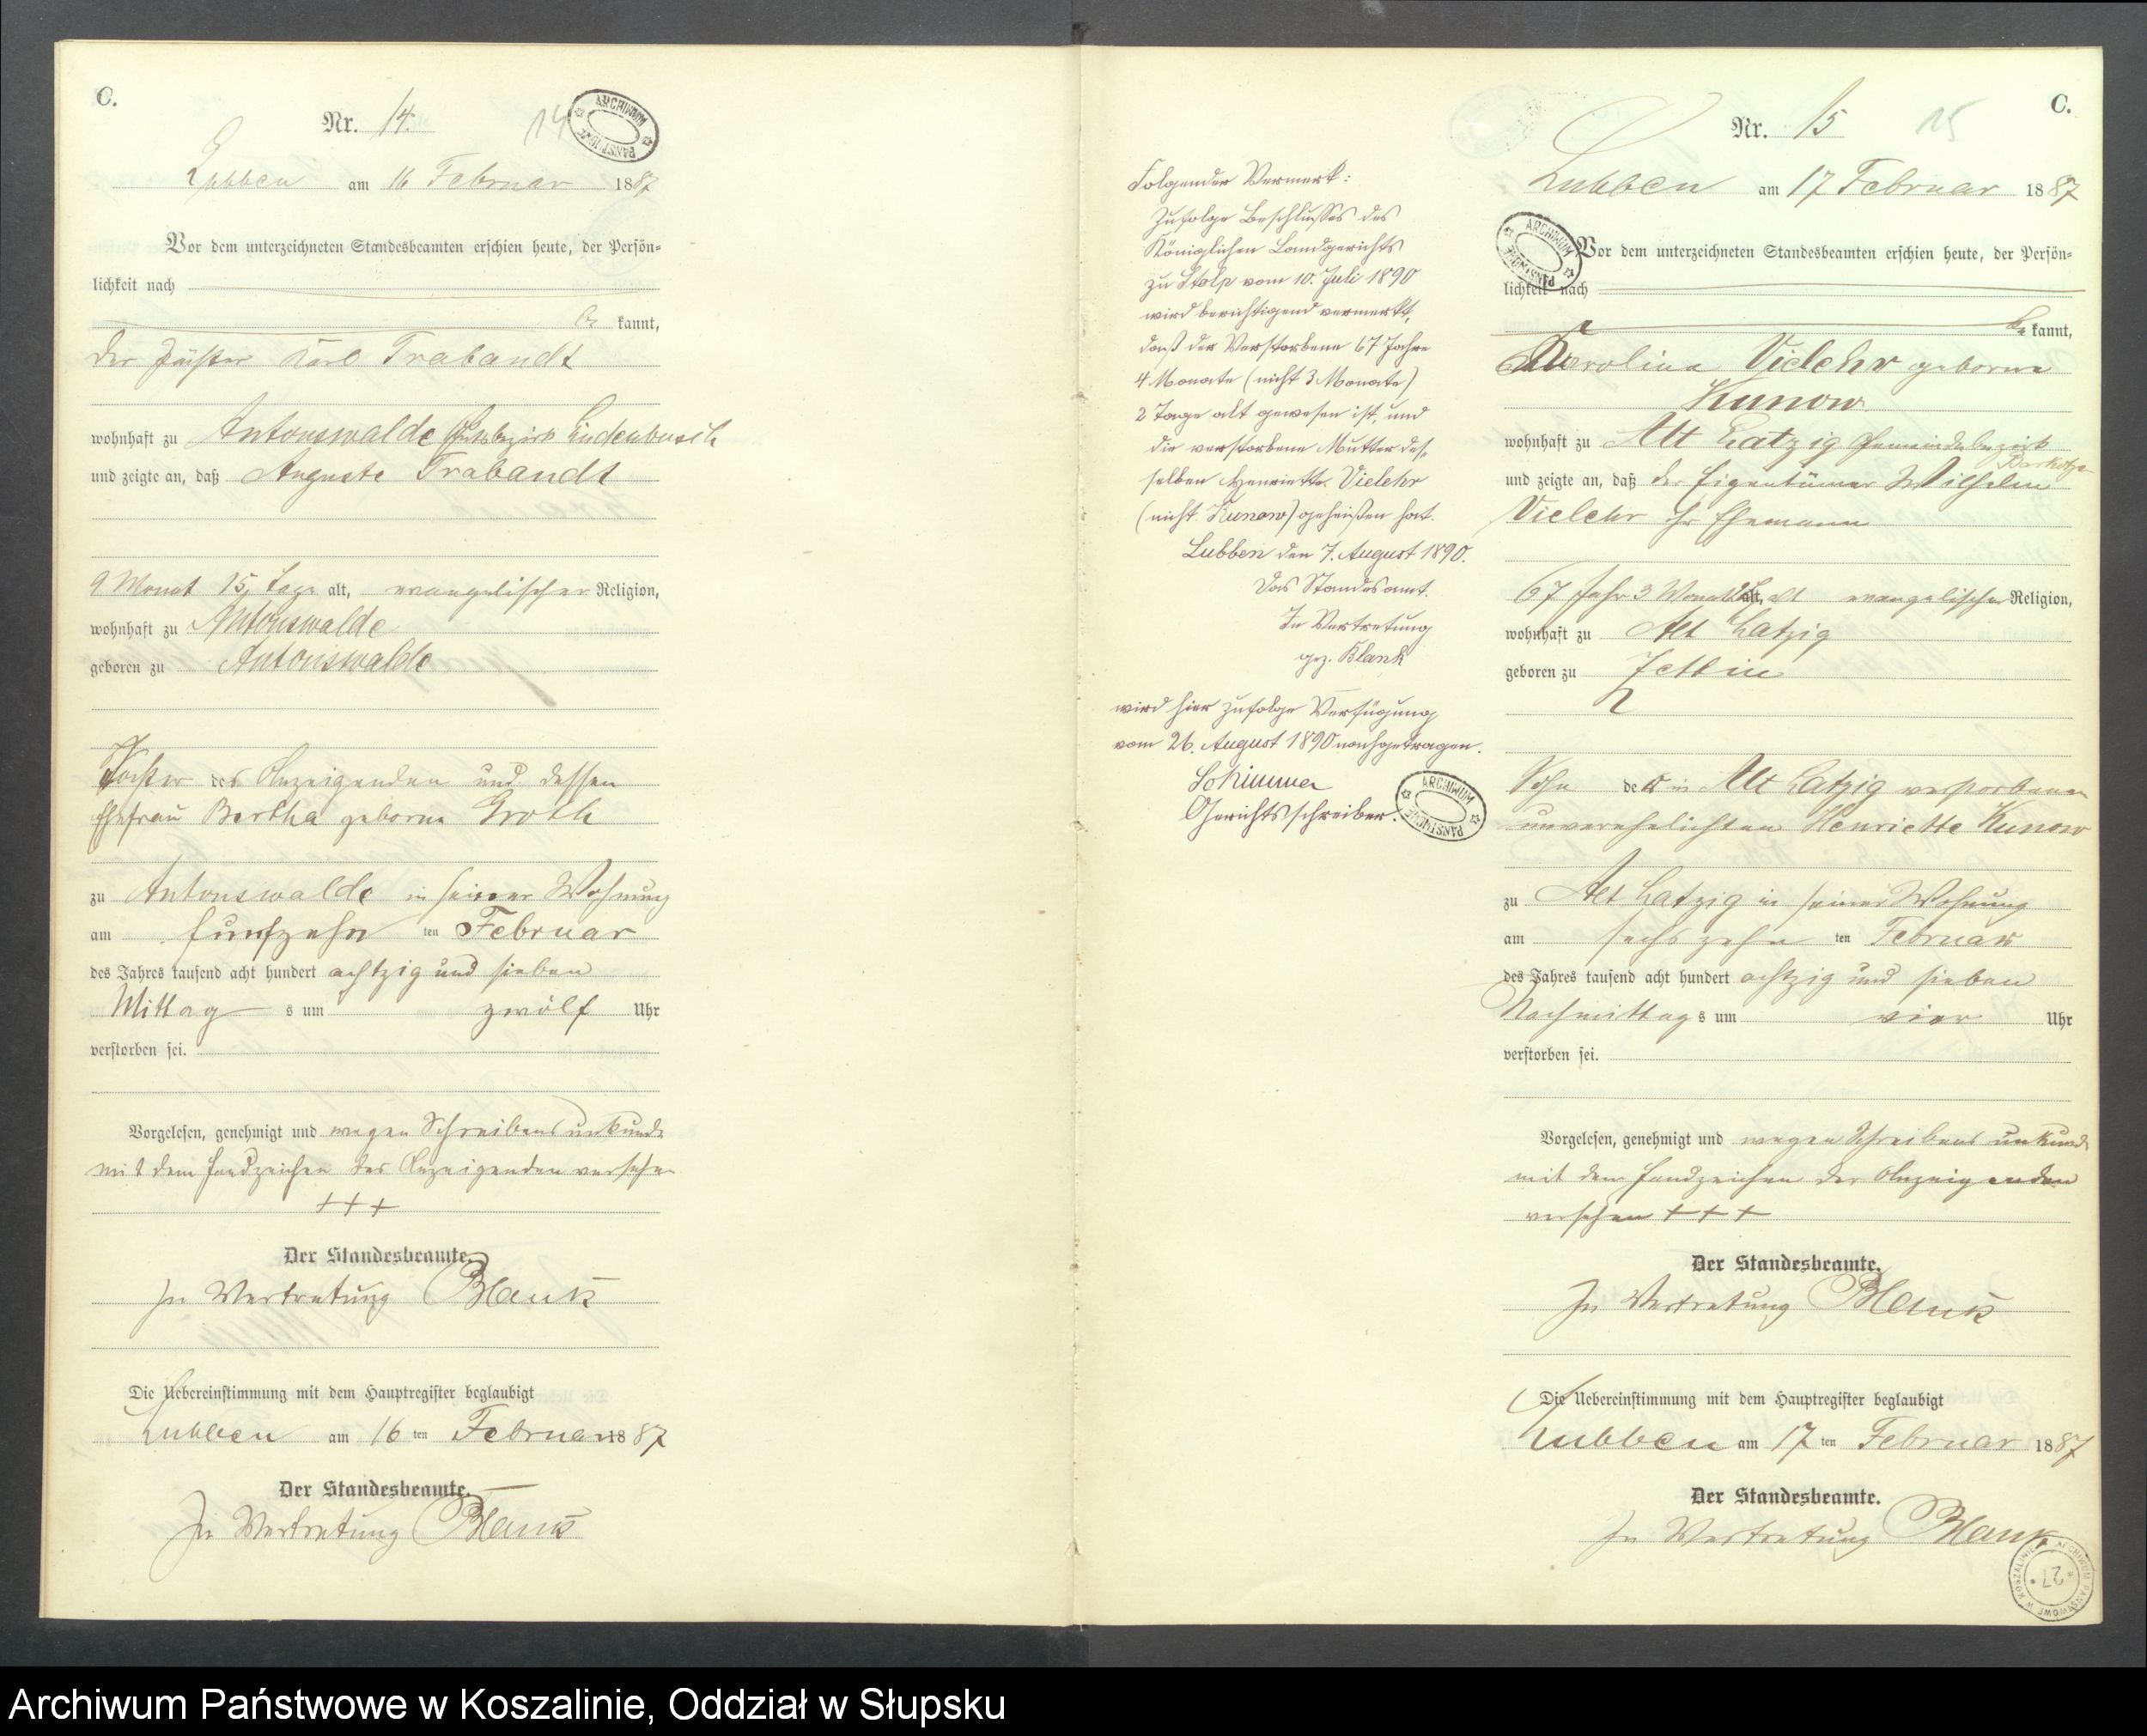 C.
Nr. 14.
14
ARCHIWUM PAŃSTWOWE
Lubben am 16 Februar 1887
Vor dem unterzeichneten Standesbeamten erschien heute, der Persön=
lichkeit nach
be kannt,
der Karl Trabandt
wohnhaft zu Antonswalde Lindenbusch
und zeigte an, daß Auguste Trabandt
9 Monat 15 Tage alt, evangelischer Religion,
wohnhaft zu Antonswalde
geboren zu Antonswalde
Tochter des Anzeigenden und dessen
Ehefrau Bertha geborne Groth
zu Antonswalde in seiner Wohnung
am funfzehn ten Februar
des Jahres tausend acht hundert achtzig und sieben
Mittag s um zwölf Uhr
verstorben sei.
Vorgelesen, genehmigt und wegen Schreibensunkunde
mit dem Handzeichen des Anzeigenden versehen
+++
Der Standesbeamte.
In Vertretung Blank
Die Uebereinstimmung mit dem Hauptregister beglaubigt
Lubben am 16 ten Februar 1887
Der Standesbeamte.
In Vertretung Blank
Folgender Vermerk:
Zufolge Beschlusses des
Königlichen Landgerichts
zu Stolp vom 10. Juli 1890
wird berichtigend vermerkt,
daß der Verstorbene 67 Jahre
4 Monate (nicht 3 Monate)
2 Tage alt gewesen ist, und
die verstorbene Mutter des=
selben Henriette Vielehr
(nicht Kunow) geheißen hat.
Lubben den 7. August 1890.
Das Standesamt.
In Vertretung
gez. Blank
wird hier zufolge Verfügung
vom 26. August 1890 nachgetragen.
Schimmer
Gerichtsschreiber.
ARCHIWUM PAŃSTWOWE
C.
Nr. 15
15
Lubben am 17 Februar 1887
ARCHIWUM PAŃSTWOWE
Vor dem unterzeichneten Standesbeamten erschien heute, der Persön=
lichkeit nach
be kannt,
Karoline Vielehr geborne
Kunow
wohnhaft zu Alt Latzig Gemeindebezirk
und zeigte an, daß der Eigentümer Wilhelm
Vielehr ihr Ehemann
67 Jahr 3 Monat alt evangelischer Religion,
wohnhaft zu Alt Latzig
geboren zu
Sohn der in Alt Latzig verstorbenen
unverehelichten Henriette Kunow
zu Alt Latzig in seiner Wohnung
am sechszehn ten Februar
des Jahres tausend acht hundert achtzig und sieben
Nachmittag s um vier Uhr
verstorben sei.
Vorgelesen, genehmigt und wegen Schreibensunkunde
mit dem Handzeichen der Anzeigenden
versehen +++
Der Standesbeamte.
In Vertretung Blank
Die Uebereinstimmung mit dem Hauptregister beglaubigt
Lubben am 17 ten Februar 1887
Der Standesbeamte.
In Vertretung Blank
ARCHIWUM PAŃSTWOWE W KOSZALINIE
27
Archiwum Państwowe w Koszalinie, Oddział w Słupsku